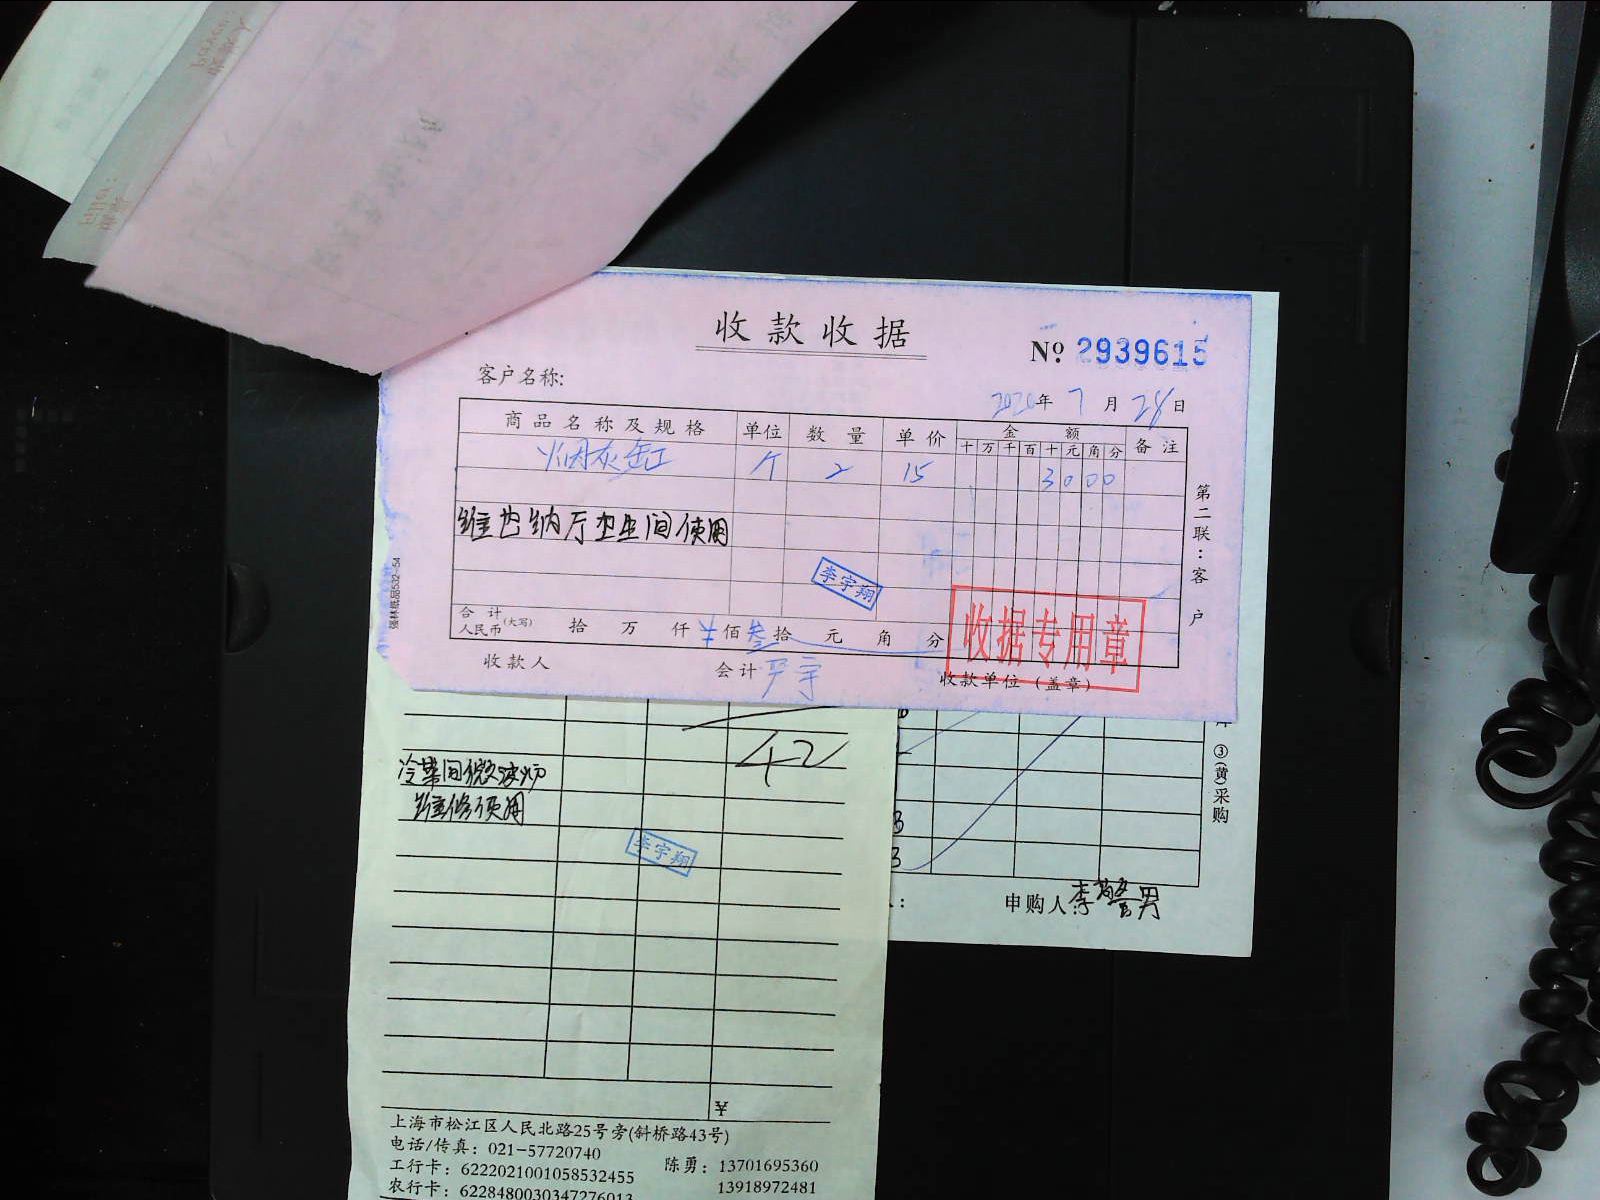 收款收据
No 2939615
客户名称:
2020年 7 月 28 日
商品名称及规格 单位 数量 单价 金额 备注
十 万 千 百 十 元 角 分
烟灰缸 个 2 15 3000
维也纳厅卫生间使用
李宇翔
合计人民币(大写) 拾 万 仟 ¥ 佰 叁 拾 元 角 分
收款人 会计 严宇 收款单位(盖章)
收据专用章
第二联:客户
强林纸品532-54
42
冷菜间微波炉
维修使用
李宇翔
¥
上海市松江区人民北路25号旁(斜桥路43号)
电话/传真: 021-57720740
工行卡: 6222021001058532455 陈勇: 13701695360
农行卡: 6228480030347276013 13918972481
③(黄)采购
申购人: